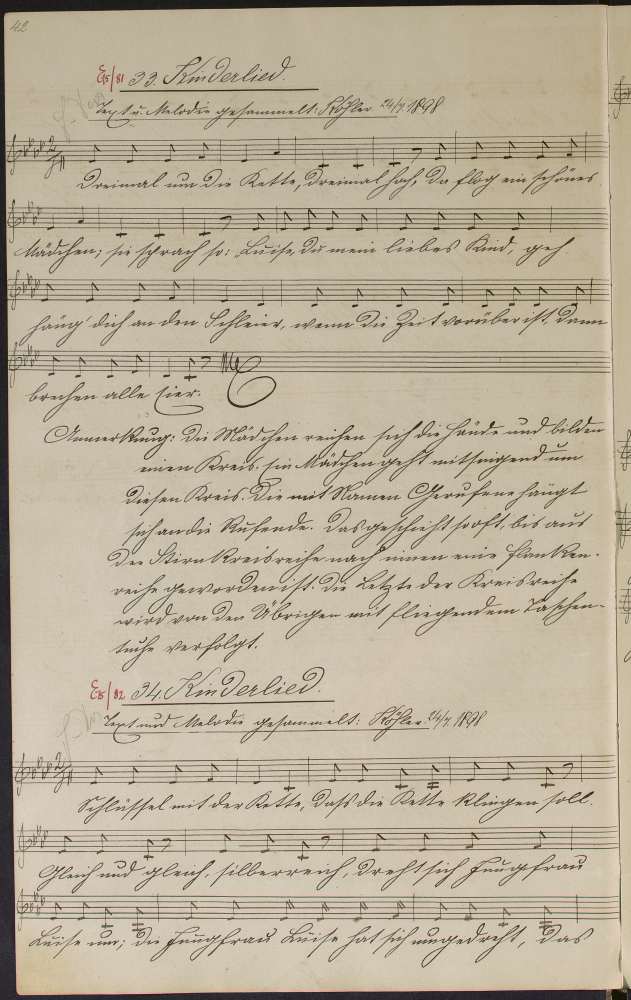 42
E5/81 33. Kinderlied.
Text u. Melodie gesammelt: Köhler 24/7 1898
Dreimal um die Kette, dreimal hoch, da flog ein schönes
Mädchen; sie sprach so: Luise, du mein liebes Kind, geh
häng' dich an den Schleier, wenn die Zeit vorüber ist, dann
brechen alle hier.
Anmerkung: Die Mädchen reichen sich die Hände und bilden
einen Kreis. Ein Mädchen geht mitsingend um
diesen Kreis. Die mit Namen Gerufene hängt
sich an die Rufende. Das geschieht so oft, bis aus
der Stirnkreisreihe nach innen eine Flanken-
reihe geworden ist. Die Letzte der Kreisreihe
wird von den Übrigen mit fliegendem Taschen-
tuche verfolgt.
E5/82 34. Kinderlied.
Text und Melodie gesammelt: Köhler 24/7 1898
Schlüssel mit der Kette, daß die Kette klingen soll.
Gleich und gleich, silberreich, dreht sich Jungfrau
Luise um; die Jungfrau Luise hat sich umgedreht, das